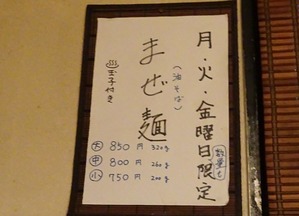 月・火・金曜日限定
数量も
(油そば)
まぜ麺
♨玉子付き
大 850円 320g
中 800円 260g
小 750円 200g